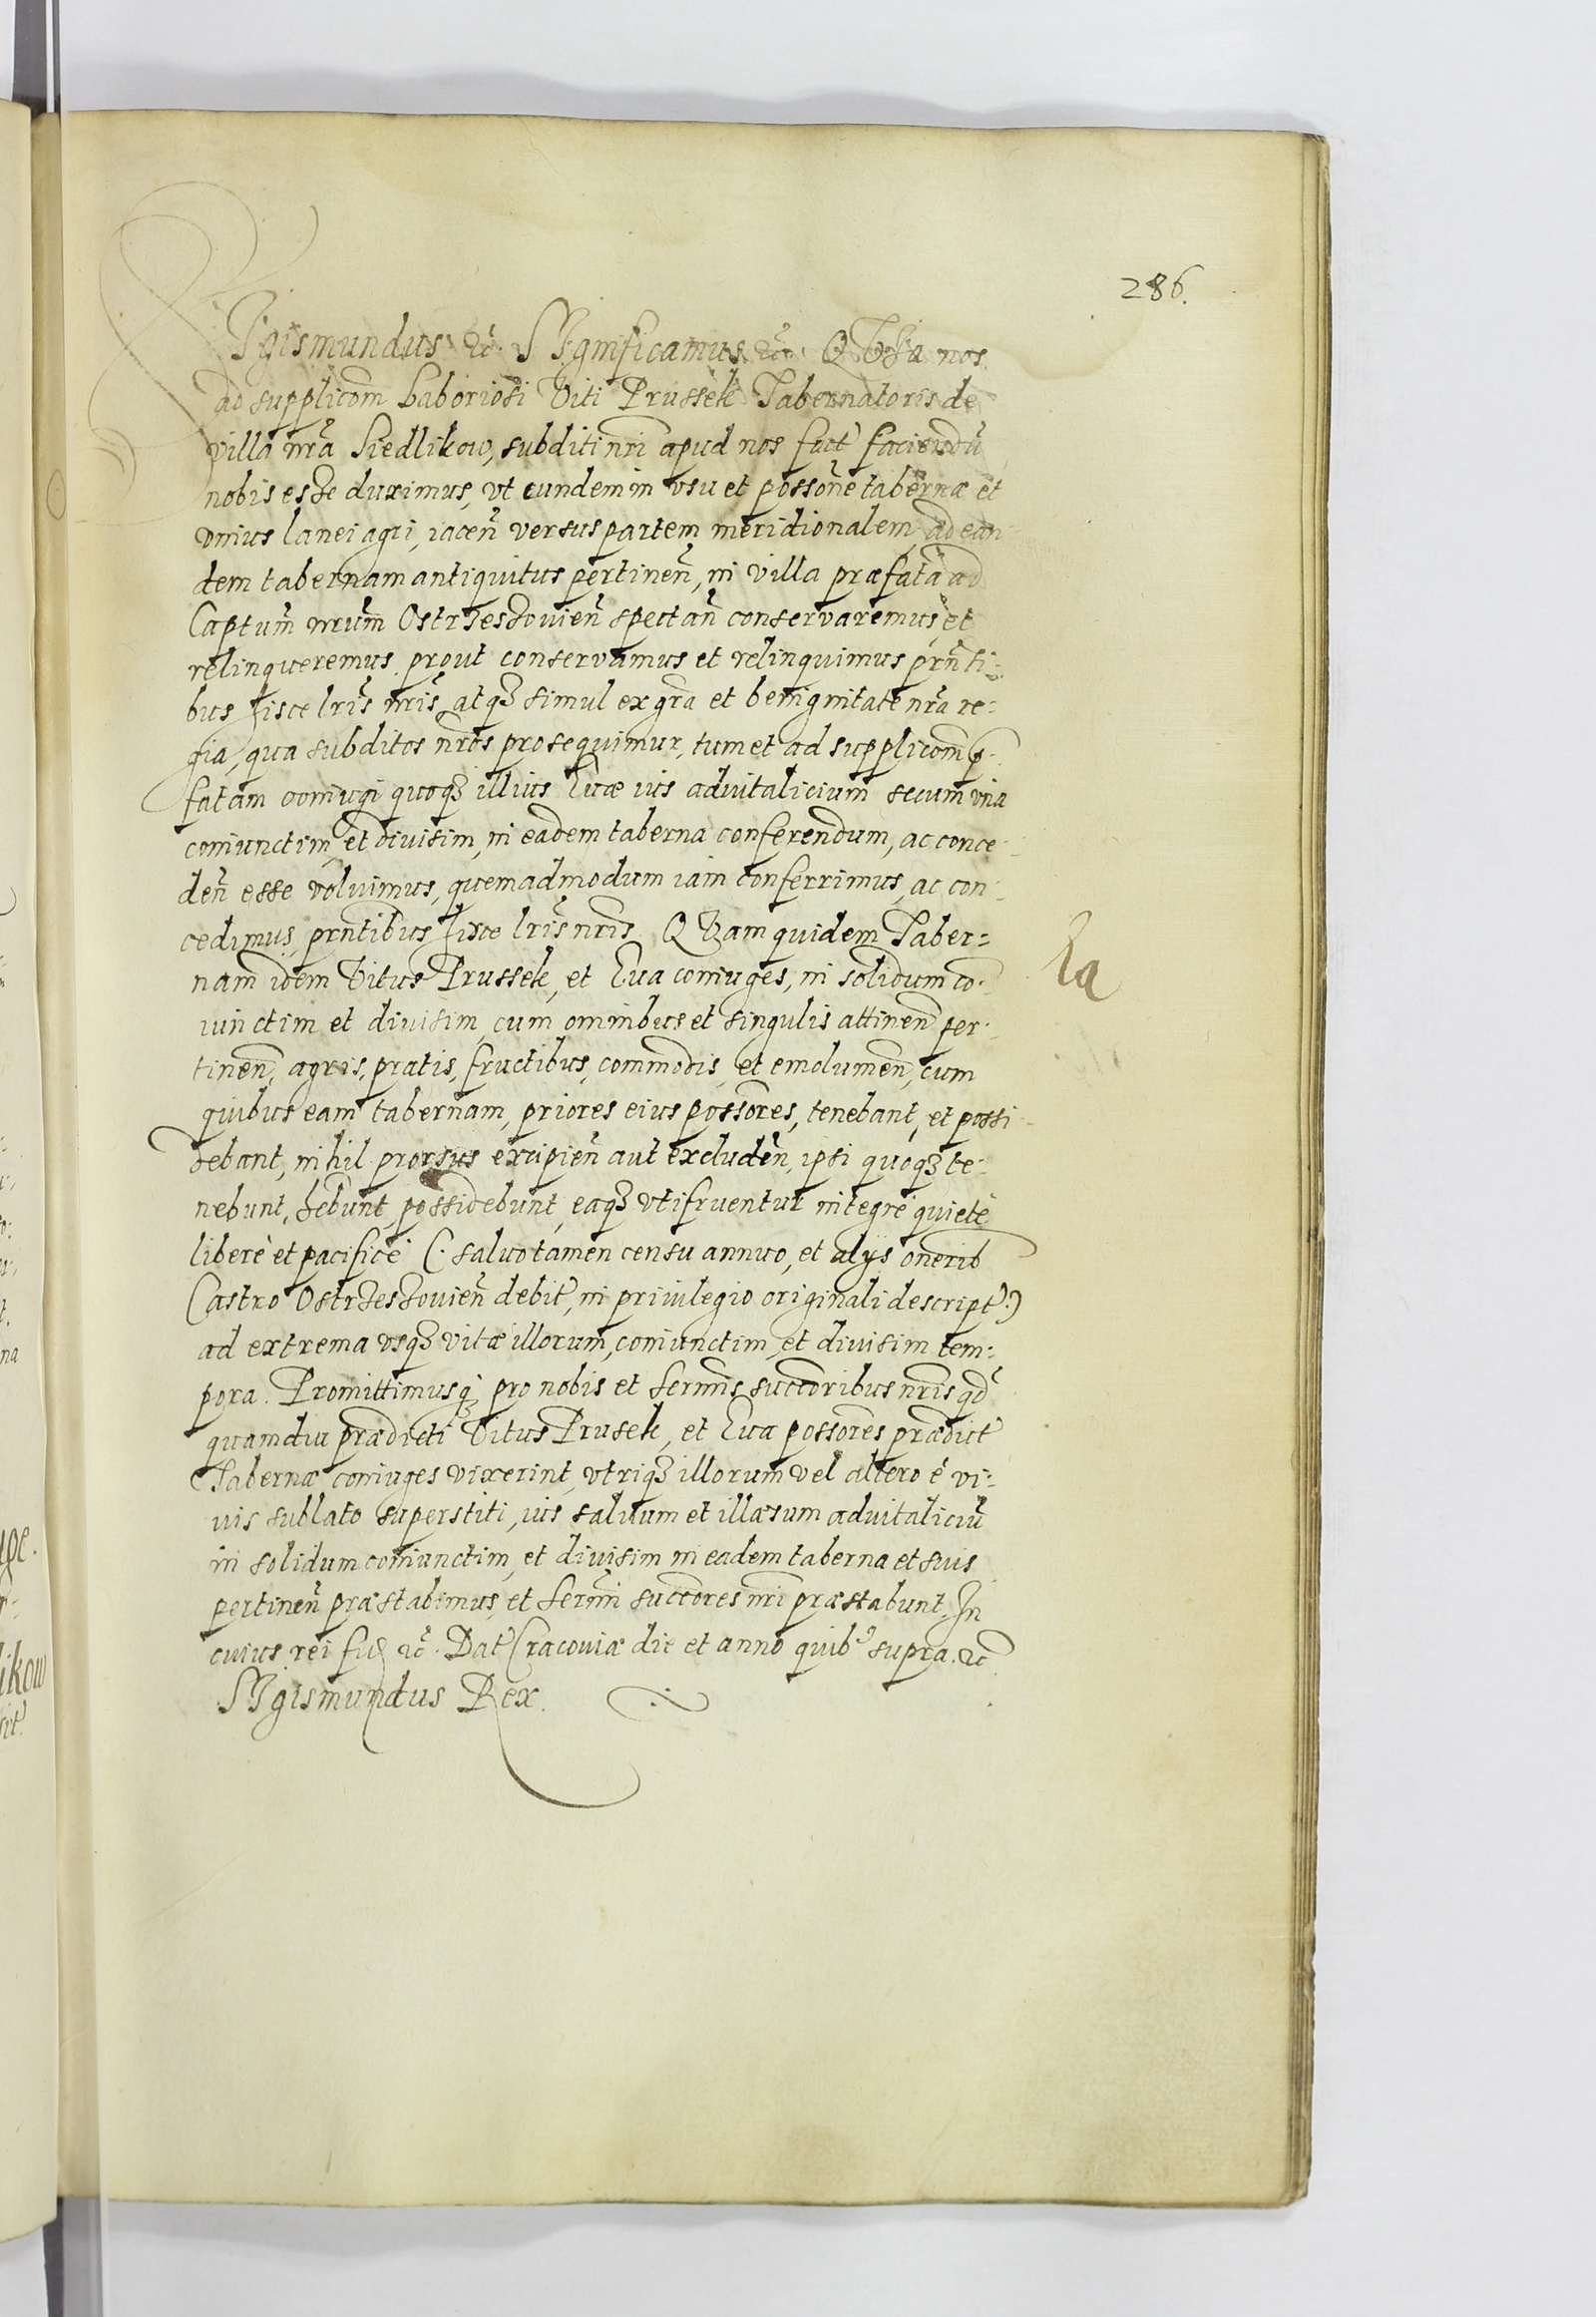 286.
Sigismundus etc. SIgnificamus etc. QVIa nos
ad supplicom̃ Laboriosi Viti Prussek Tabernatoris de
villa nrã Siedlikow, subditi nrĩ apud nos fact̃ faciendũ
nobis esse duximus, vt eundem in vsu et possoñe tabernæ et
vnius lanei agri, iaceñ versus partem meridionalem, ad ean
dem tabernam antiquitus pertineñ, in villa præfata ad
Captum̃ nrũm Ostrzeszouieñ spectañ conservaremus, et
relinqueremus, prout conservamus et relinquimus prñti-
bus hisce lrĩs nrĩs, atqз simul ex grã et benignitate nrã re-
gia, qua subditos nrõs prosequimur, tum et ad supplicom̃ p̃-
fatam coniugi quoqз illius Euæ ius aduitalicium secum vna
coniunctim, et divisim, in eadem taberna conferendum, ac conce-
deñ esse voluimus, quemadmodum iam conferrimus, ac con-
cedimus, prñtibus hisce lrĩs nrĩs. QVam quidem Taber=
nam idem Vitus Prussek, et Eua coniuges, in solidum co-
iunctim et diuisim, cum omnibus et singulis attineñ per-
tineñ, agris, pratis, fructibus, commodis, et emolumeñ, cum
quibus eam tabernam, priores eius possores, tenebant, et possi
debant, nihil prorsus excipieñ aut excludeñ, ipsi quoqз te-
nebunt, hẽbunt, possidebunt, eaqз vtifruentur integrè quietè
liberè et pacificè (: saluo tamen censu annuo, et alijs onerib
Castro Ostrzeszouieñ debit̃, in priuilegio originali descript̃ :)
ad extrema vsqз vitæ illorum, coniunctim, et diuisim tem-
pora. Promittimusqз pro nobis et Serm̃is succoribus nrĩs qd̃
quamdiu prædicti Vitus Prusek, et Eua possores prædict̃
Tabernæ coniuges vixerint, vtriqз illorum vel altero è vi-
uis sublato superstiti, ius saluum et illæsum aduitaliciũ
in solidum coniunctim, et diuisim in eadem taberna et suis
pertineñ præstabimus, et Serm̃i succores nrĩ præstabunt. In
cuius rei fid etc. Dat̃ Cracouiæ die et anno quib supra. etc
SIgismundus Rex.